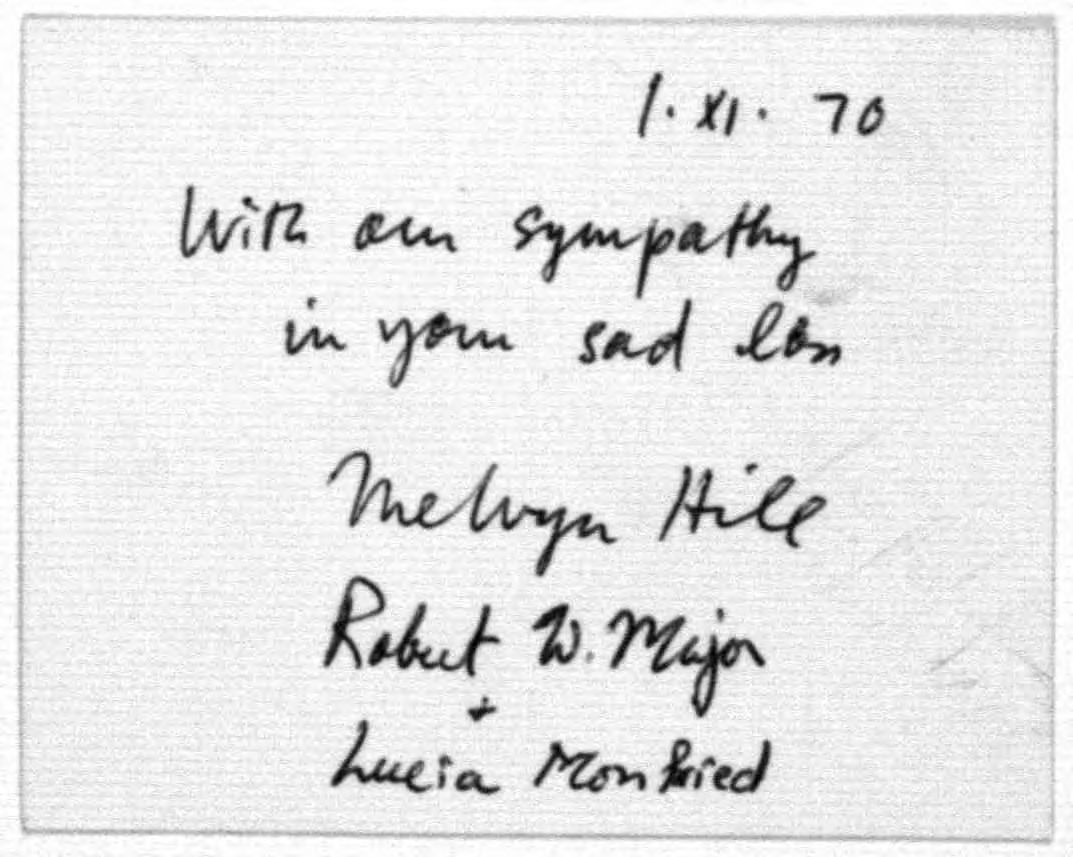 1. XI. 70
With our sympathy
in your sad loss
Melvyn Hill
Robert W. Major
+
Lucia Monfried